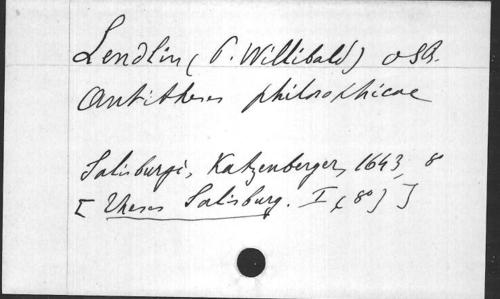 Lendlin (P. Willibald) OSB.
Antitheses philosophicae
Salisburgi, Katzenberger, 1643, 8
[Theses Salisburg. I (8°)]